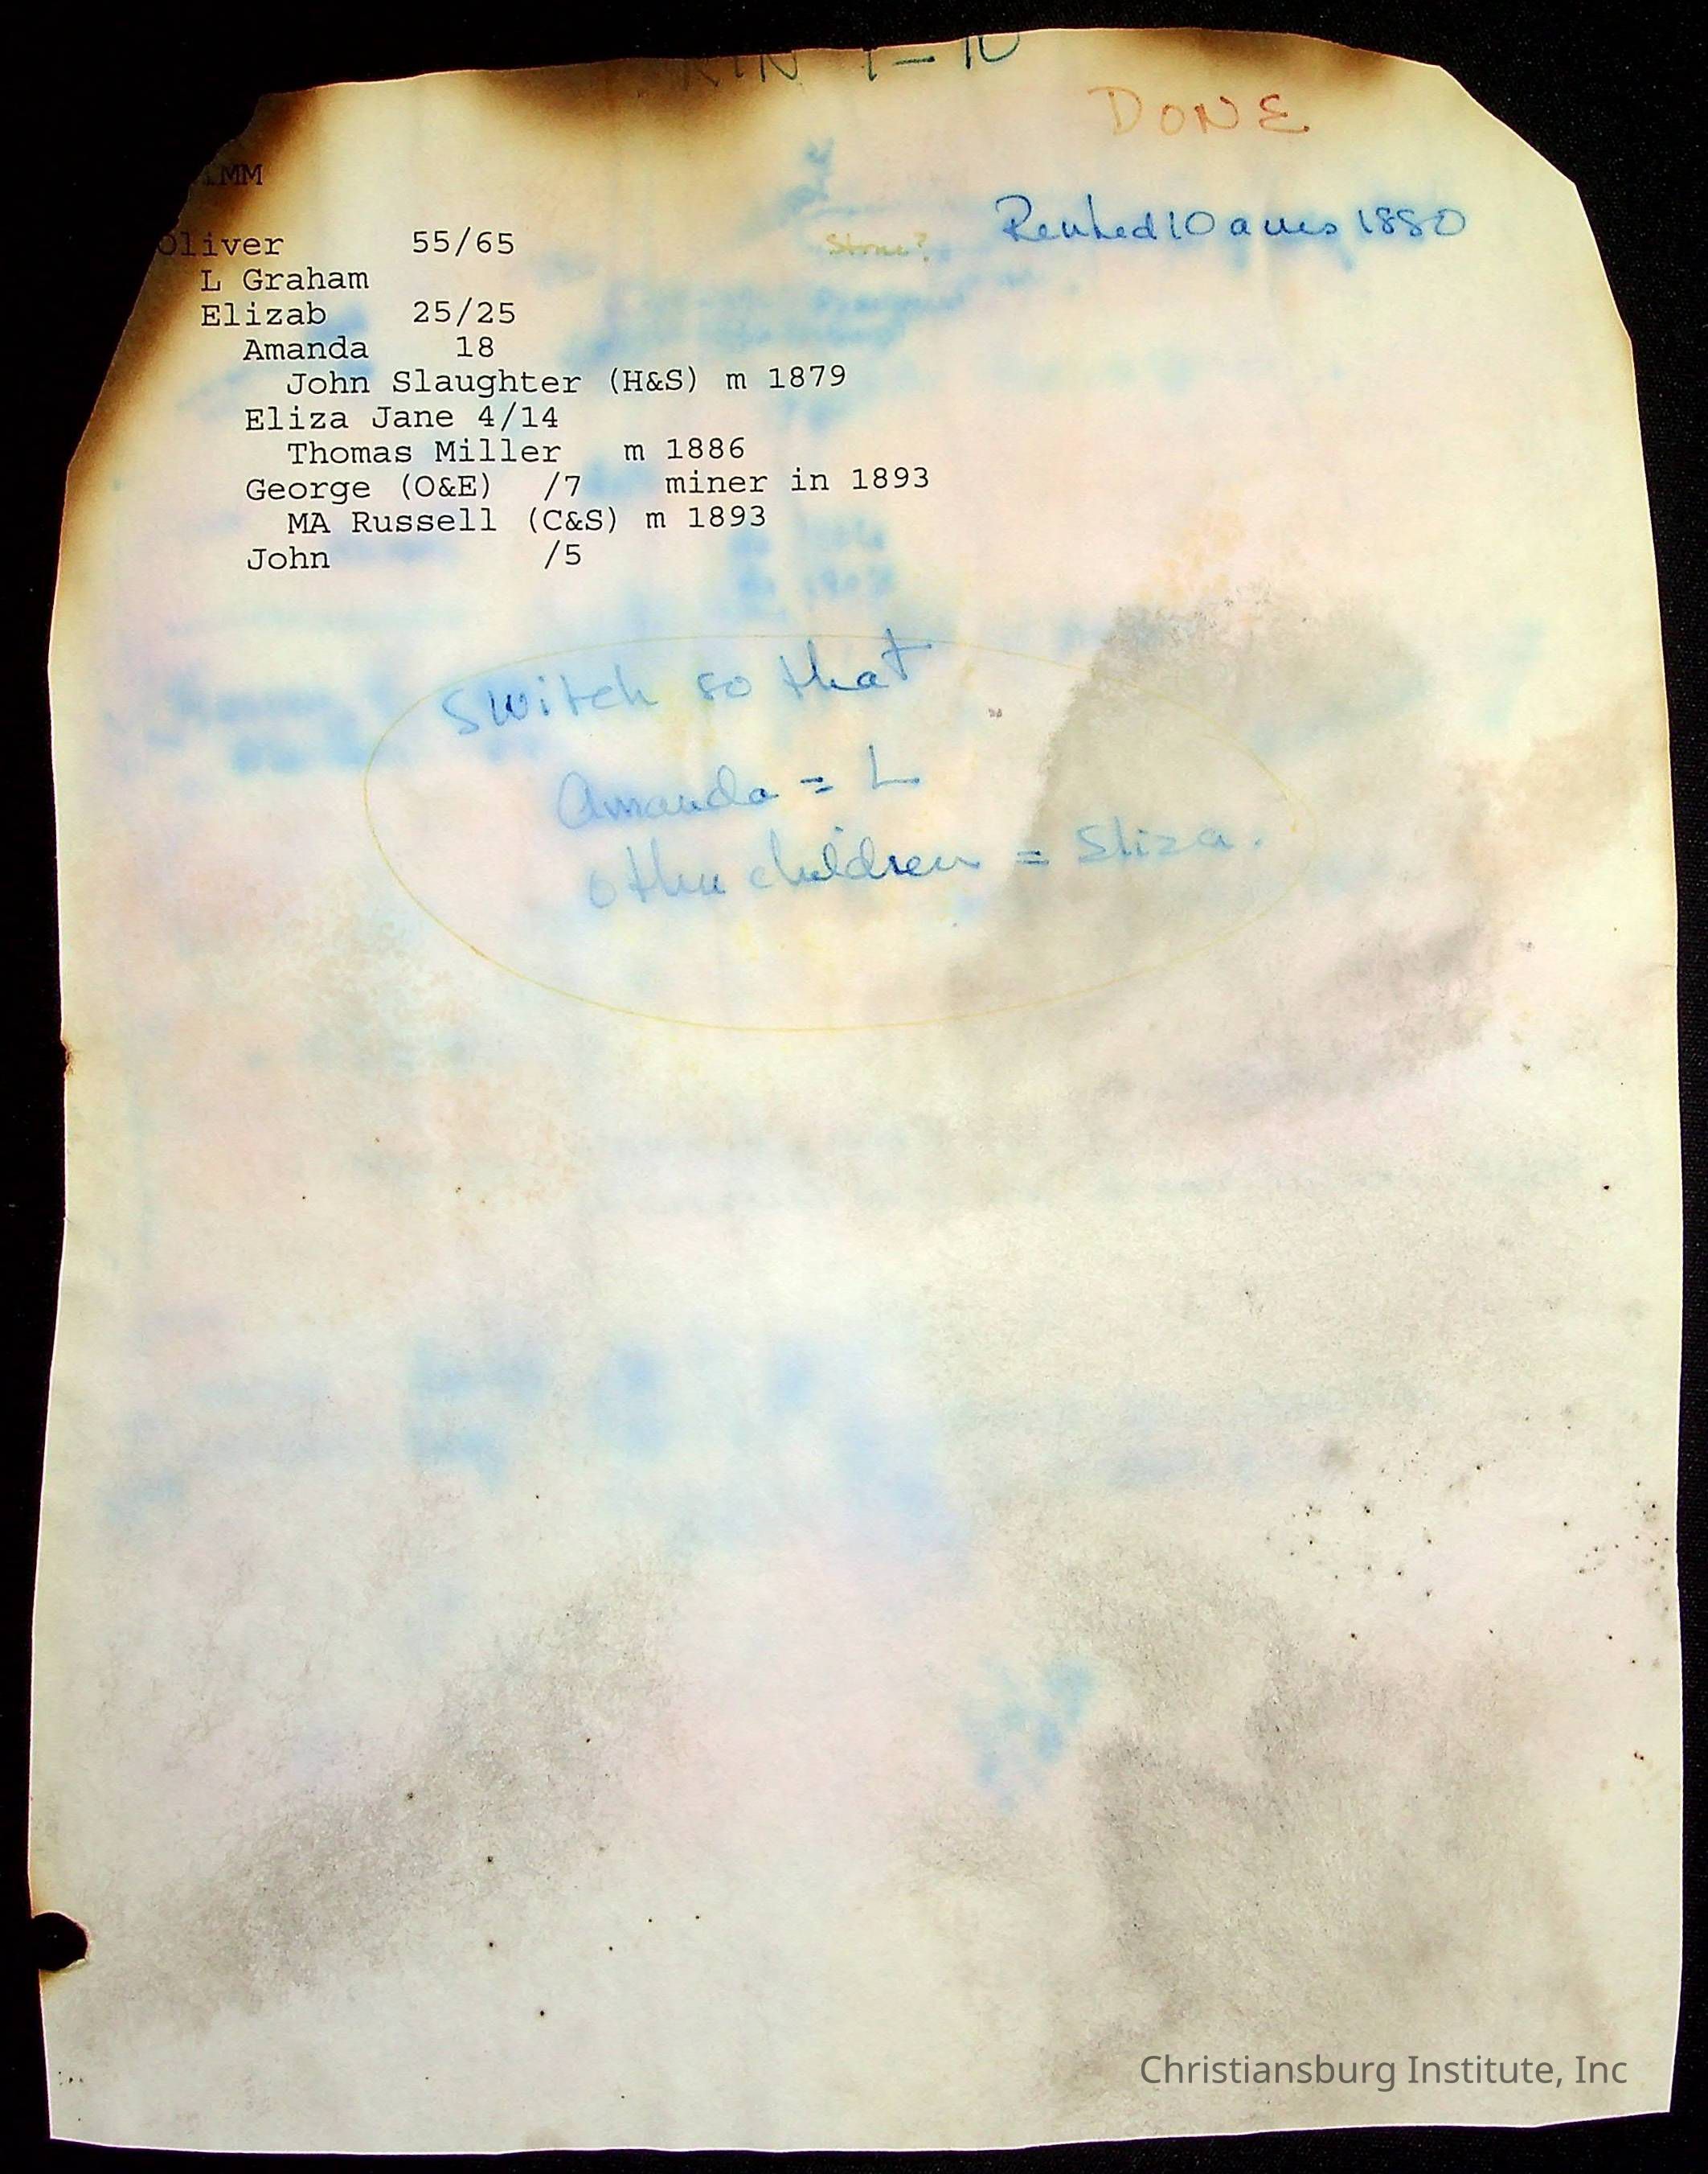 DONE
Rented 10 acres 1880
Stone?
Oliver 55/65
L Graham
Elizab 25/25
Amanda 18
John Slaughter (H&S) m 1879
Eliza Jane 4/14
Thomas Miller m 1886
George (O&E) /7 miner in 1893
MA Russell (C&S) m 1893
John /5
Switch so that
Amanda = L
other children = Eliza.
Christiansburg Institute, Inc